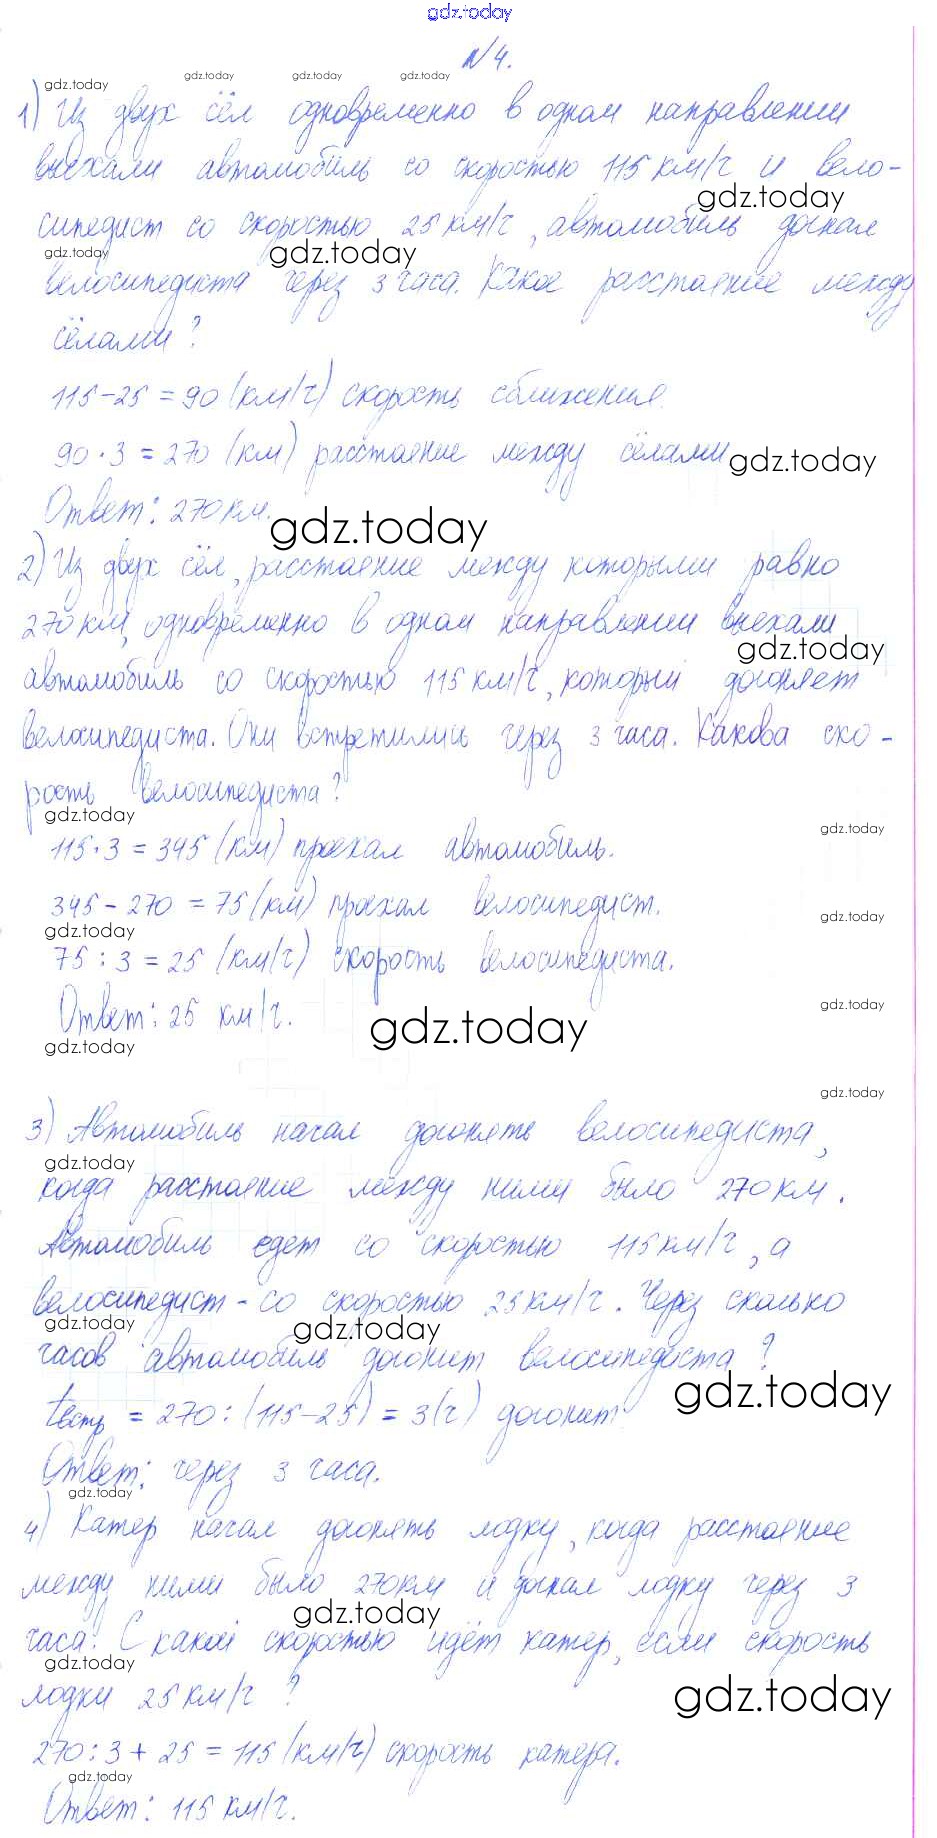 gdz.today
№4.
gdz.today gdz.today gdz.today gdz.today
1) Из двух сёл одновременно в одном направлении
выехали автомобиль со скоростью 115 км/ч и вело-
gdz.today
сипедист со скоростью 25 км/ч, автомобиль догнал
gdz.today gdz.today
велосипедиста через 3 часа. Какое расстояние между
сёлами?
115-25 = 90 (км/ч) скорость сближения.
90 · 3 = 270 (км) расстояние между сёлами
gdz.today
Ответ: 270 км.
gdz.today
2) Из двух сёл, расстояние между которыми равно
270 км, одновременно в одном направлении выехали
gdz.today
автомобиль со скоростью 115 км/ч, который догоняет
велосипедиста. Они встретились через 3 часа. Какова ско-
рость велосипедиста?
gdz.today gdz.today
115·3 = 345 (км) проехал автомобиль.
345 - 270 = 75 (км) проехал велосипедист.
gdz.today gdz.today
75 : 3 = 25 (км/ч) скорость велосипедиста.
Ответ: 25 км/ч.
gdz.today gdz.today
gdz.today
gdz.today
3) Автомобиль начал догонять велосипедиста,
gdz.today
когда расстояние между ними было 270 км.
Автомобиль едет со скоростью 115 км/ч, а
велосипедист - со скоростью 25 км/ч. Через сколько
gdz.today gdz.today
часов автомобиль догонит велосипедиста?
gdz.today
tвстр = 270 : (115-25) = 3(ч) догонит
Ответ: через 3 часа.
gdz.today
4) Катер начал догонять лодку, когда расстояние
между ними было 270 км и догнал лодку через 3
gdz.today
часа. С какой скоростью идёт катер, если скорость
gdz.today
лодки 25 км/ч?
gdz.today
270 : 3 + 25 = 115 (км/ч) скорость катера.
gdz.today
Ответ: 115 км/ч.